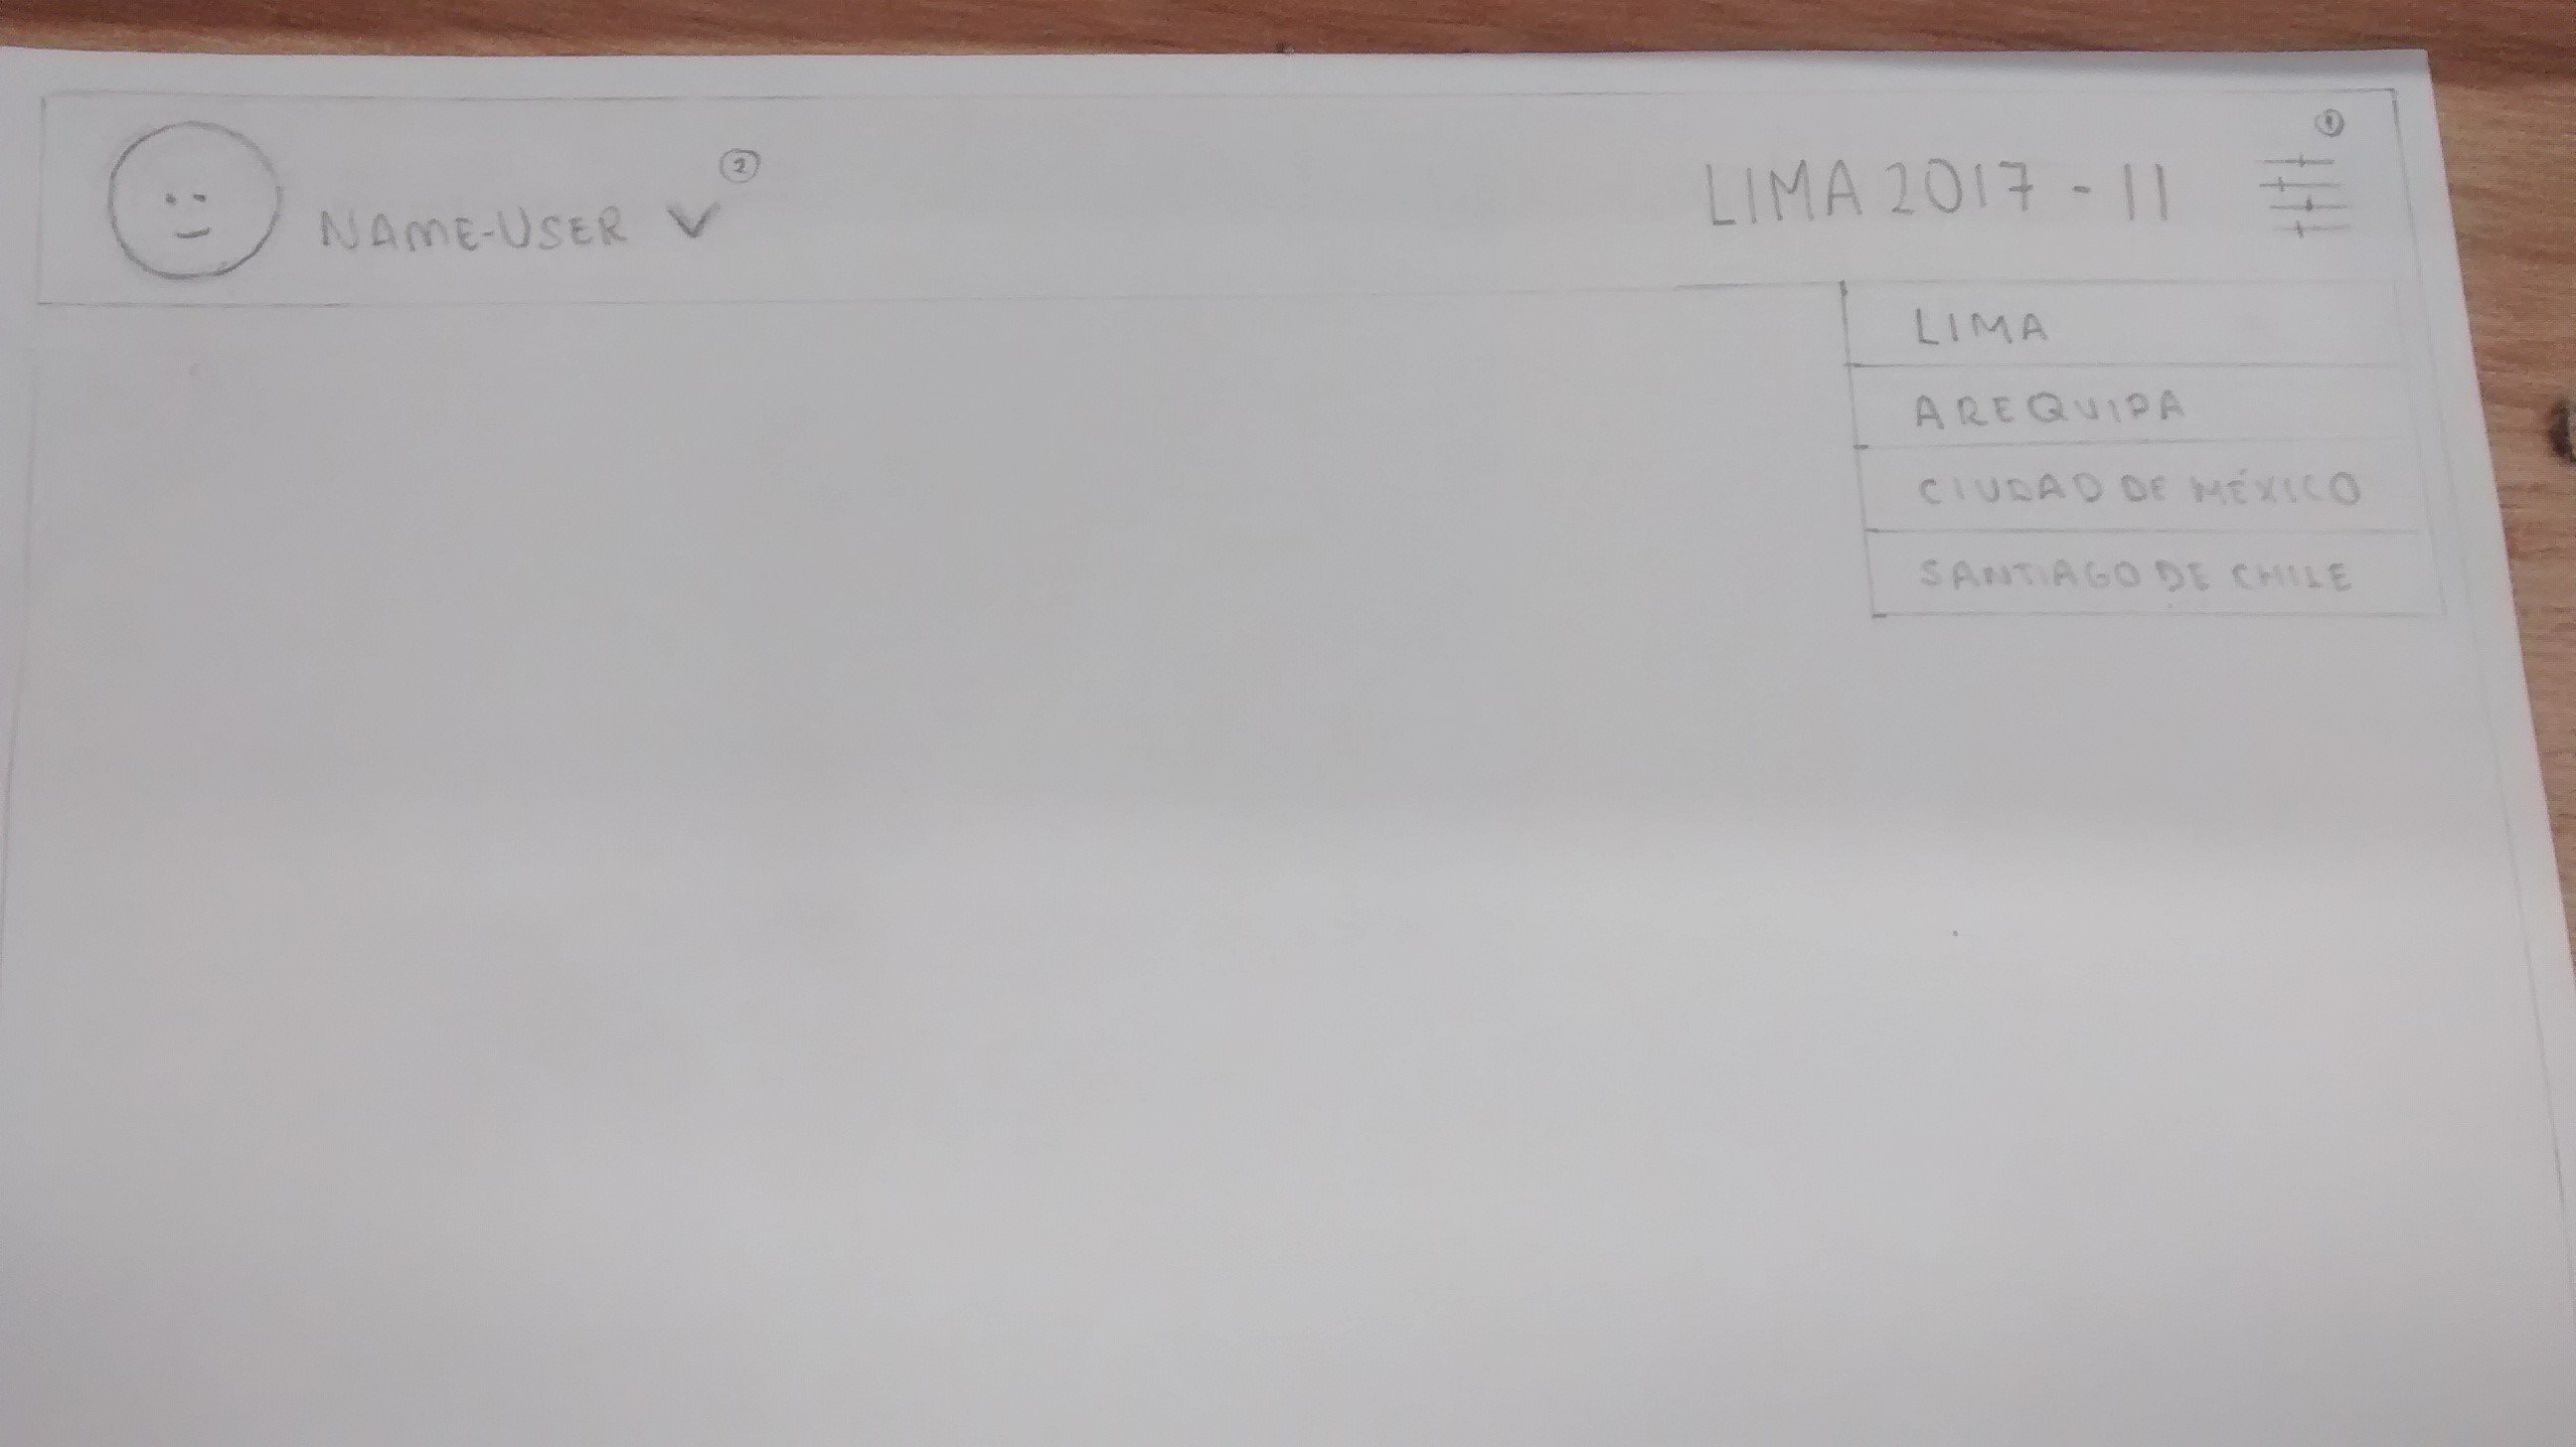 NAME-USER V ②
LIMA 2017 - II ①
LIMA
AREQUIPA
CIUDAD DE MÉXICO
SANTIAGO DE CHILE